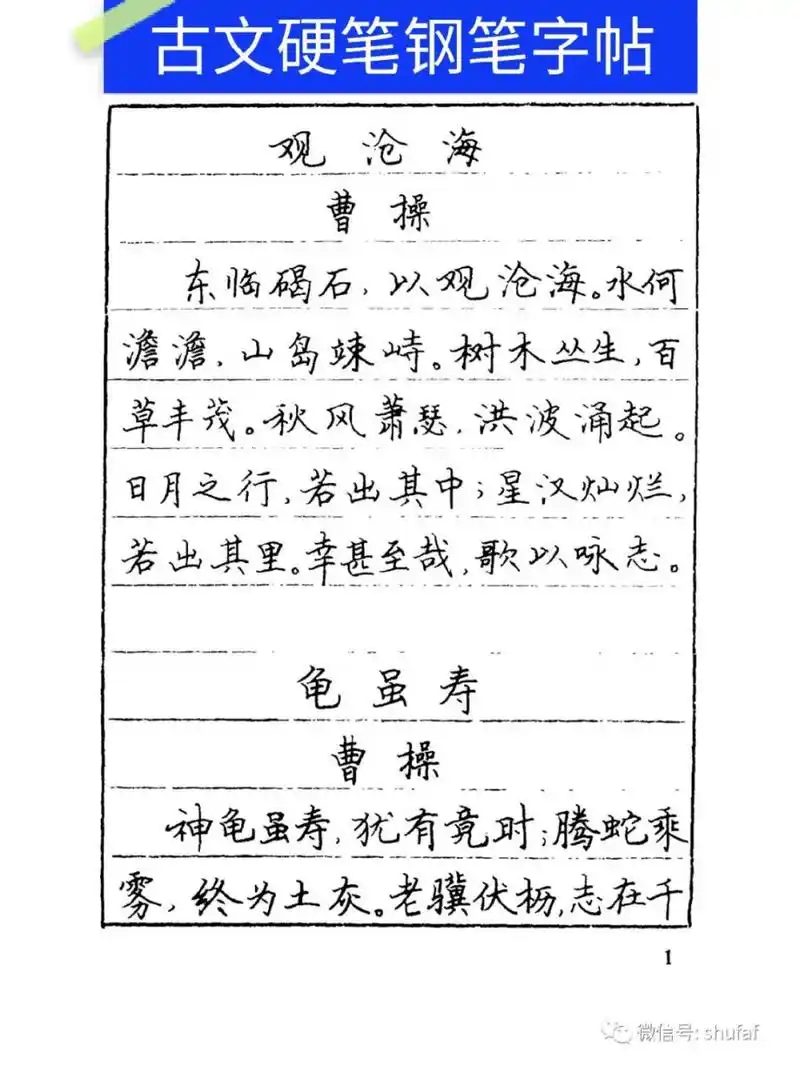 古文硬笔钢笔字帖
观沧海
曹操
东临碣石，以观沧海。水何
澹澹，山岛竦峙。树木丛生，百
草丰茂。秋风萧瑟，洪波涌起。
日月之行，若出其中；星汉灿烂，
若出其里。幸甚至哉，歌以咏志。
龟虽寿
曹操
神龟虽寿，犹有竟时；腾蛇乘
雾，终为土灰。老骥伏枥，志在千
1
微信号: shufaf